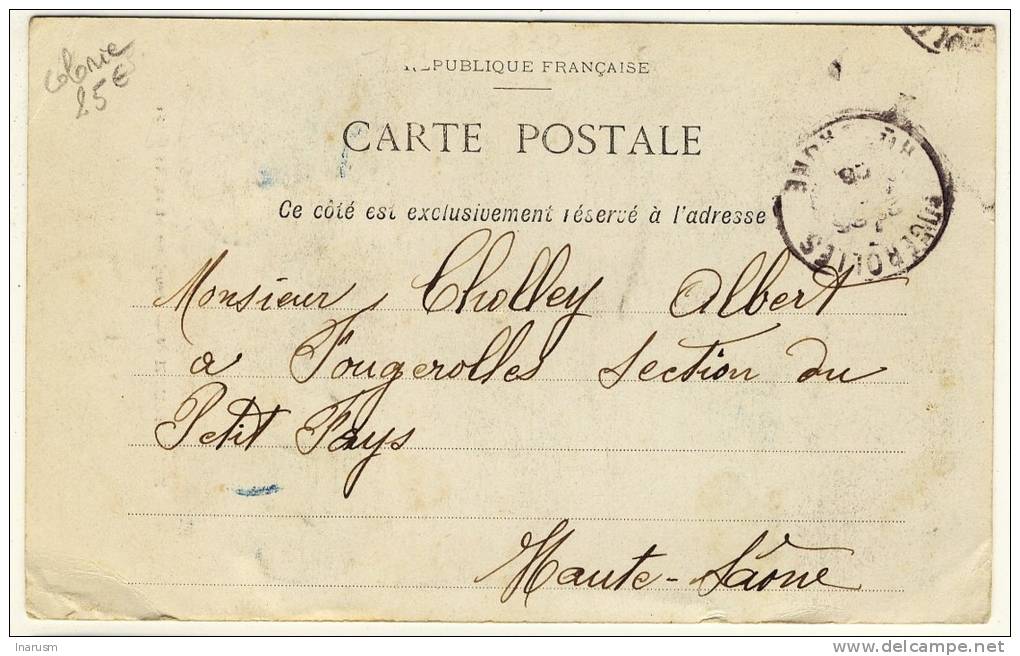 colonie
25€
RÉPUBLIQUE FRANÇAISE
CARTE POSTALE
Ce côté est exclusivement réservé à l'adresse
FOUGEROLLES
Hte SAONE
Monsieur Cholley Albert
a Fougerolles Section du
Petit Fays
Haute-Saône
Inarusm
delcampe.net